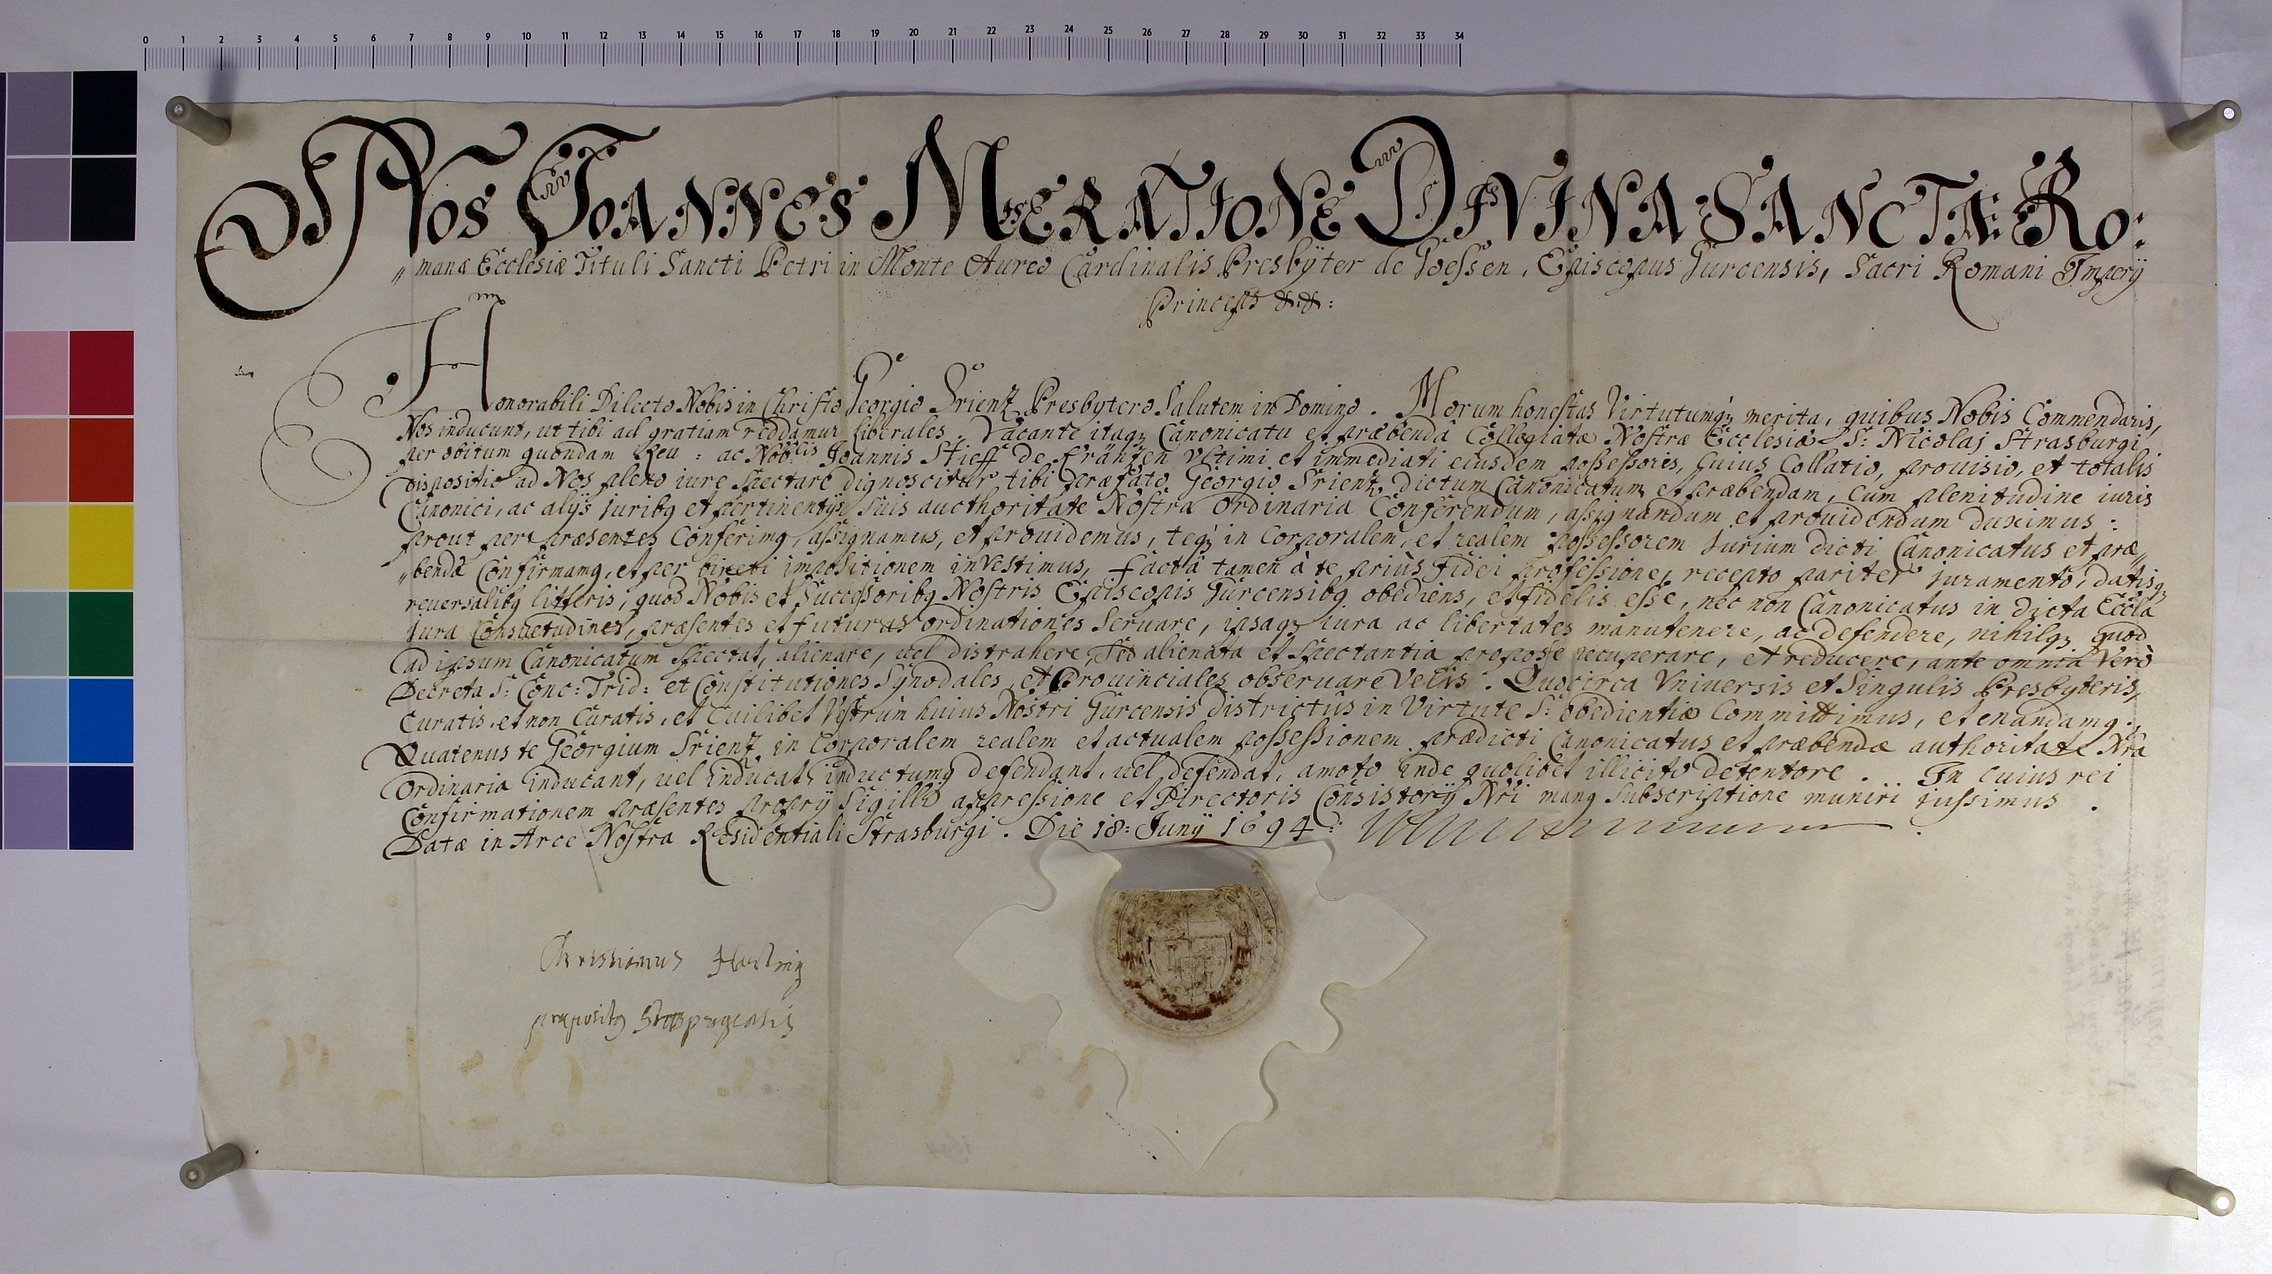 0 1 2 3 4 5 6 7 8 9 10 11 12 13 14 15 16 17 18 19 20 21 22 23 24 25 26 27 28 29 30 31 32 33 34
Nos Joannes Miseratione Divina Sanctæ Ro:
„manæ Ecclesiæ Tituli Sancti Petri in Monte Aureo Cardinalis Presbÿter de Goessen, Episcopus Gurcensis, Sacri Romani Imperÿ
Princeps &:&:
Honorabili Dilecto Nobis in Christo Georgio Srienz Presbytero Salutem in Domino. Morum honestas Virtutumq; merita, quibus Nobis Commendaris,
Nos inducunt, ut tibi ad gratiam reddamur liberales. Vacante itaq; Canonicatu et præbendâ Collegiatæ Nostræ Ecclesiæ S: Nicolaj Strasburgi
per obitum quondam Reu: ac Nobilis Joannis Stieff De Fränzen Vltimi et immediati eiusdem possessoris, Cuius Collatio, prouisio, et totalis
Dispositio ad Nos pleno iure spectare dignoscitur, tibi præfato Georgio Srienz dictum Canonicatum et præbendam, cum plenitudine iuris
Canonici, ac alÿs iuribq et pertinentÿs suis aucthoritate Nostra Ordinaria Conferendum, assignandum et prouidendum duximus:
prout per præsentes Conferimq, assignamus, et prouidemus, teq; in Corporalem, et realem possessorem Iurium dicti Canonicatus et præ„
„bendæ Confirmamq, et per bireti impositionem inVestimus, Factâ tamen à te priùs Fidei professione, recepto pariter juramento, datisq;
reuersalibq litteris, quod Nobis et Successoribq Nostris Episcopis Gurcensibq obediens, et fidelis esse, nec non Canonicatus in dicta Eccla
Iura Consuetudines, præsentes et futuras ordinationes Seruare, ipsaq; iura ac libertates manutenere, ac defendere, nihilq; quod
ad ipsum Canonicatum spectat, alienare, uel distrahere, sed alienata et spectantia pro posse recuperare, et reducere, ante omnia Verò
Decreta S: Conc: Trid: et Constitutiones Sÿnodales, et Prouinciales obseruare Velis. Quocirca Vniuersis et Singulis Presbyteris,
Curatis, et non Curatis, et Cuilibet Vestrum huius Nostri Gurcensis districtus in Virtute S: obedientiæ Committimus, et mandamq:
Quatenus te Georgium Srienz in Corporalem realem et actualem possessionem prædicti Canonicatus et præbendæ authoritate Nra
Ordinaria inducant, uel inducat, inductumq defendant, uel defendat, amoto inde quolibet illicito detentore. In Cuius rei
Confirmationem præsentes proprÿ Sigilli appressione et Directoris Consistorÿ Nri manq subscriptione muniri jussimus.
Datæ in Arce Nostra Residentiali Strasburgi. Die 18: Junÿ 1694:
præpositq Straspurgensis